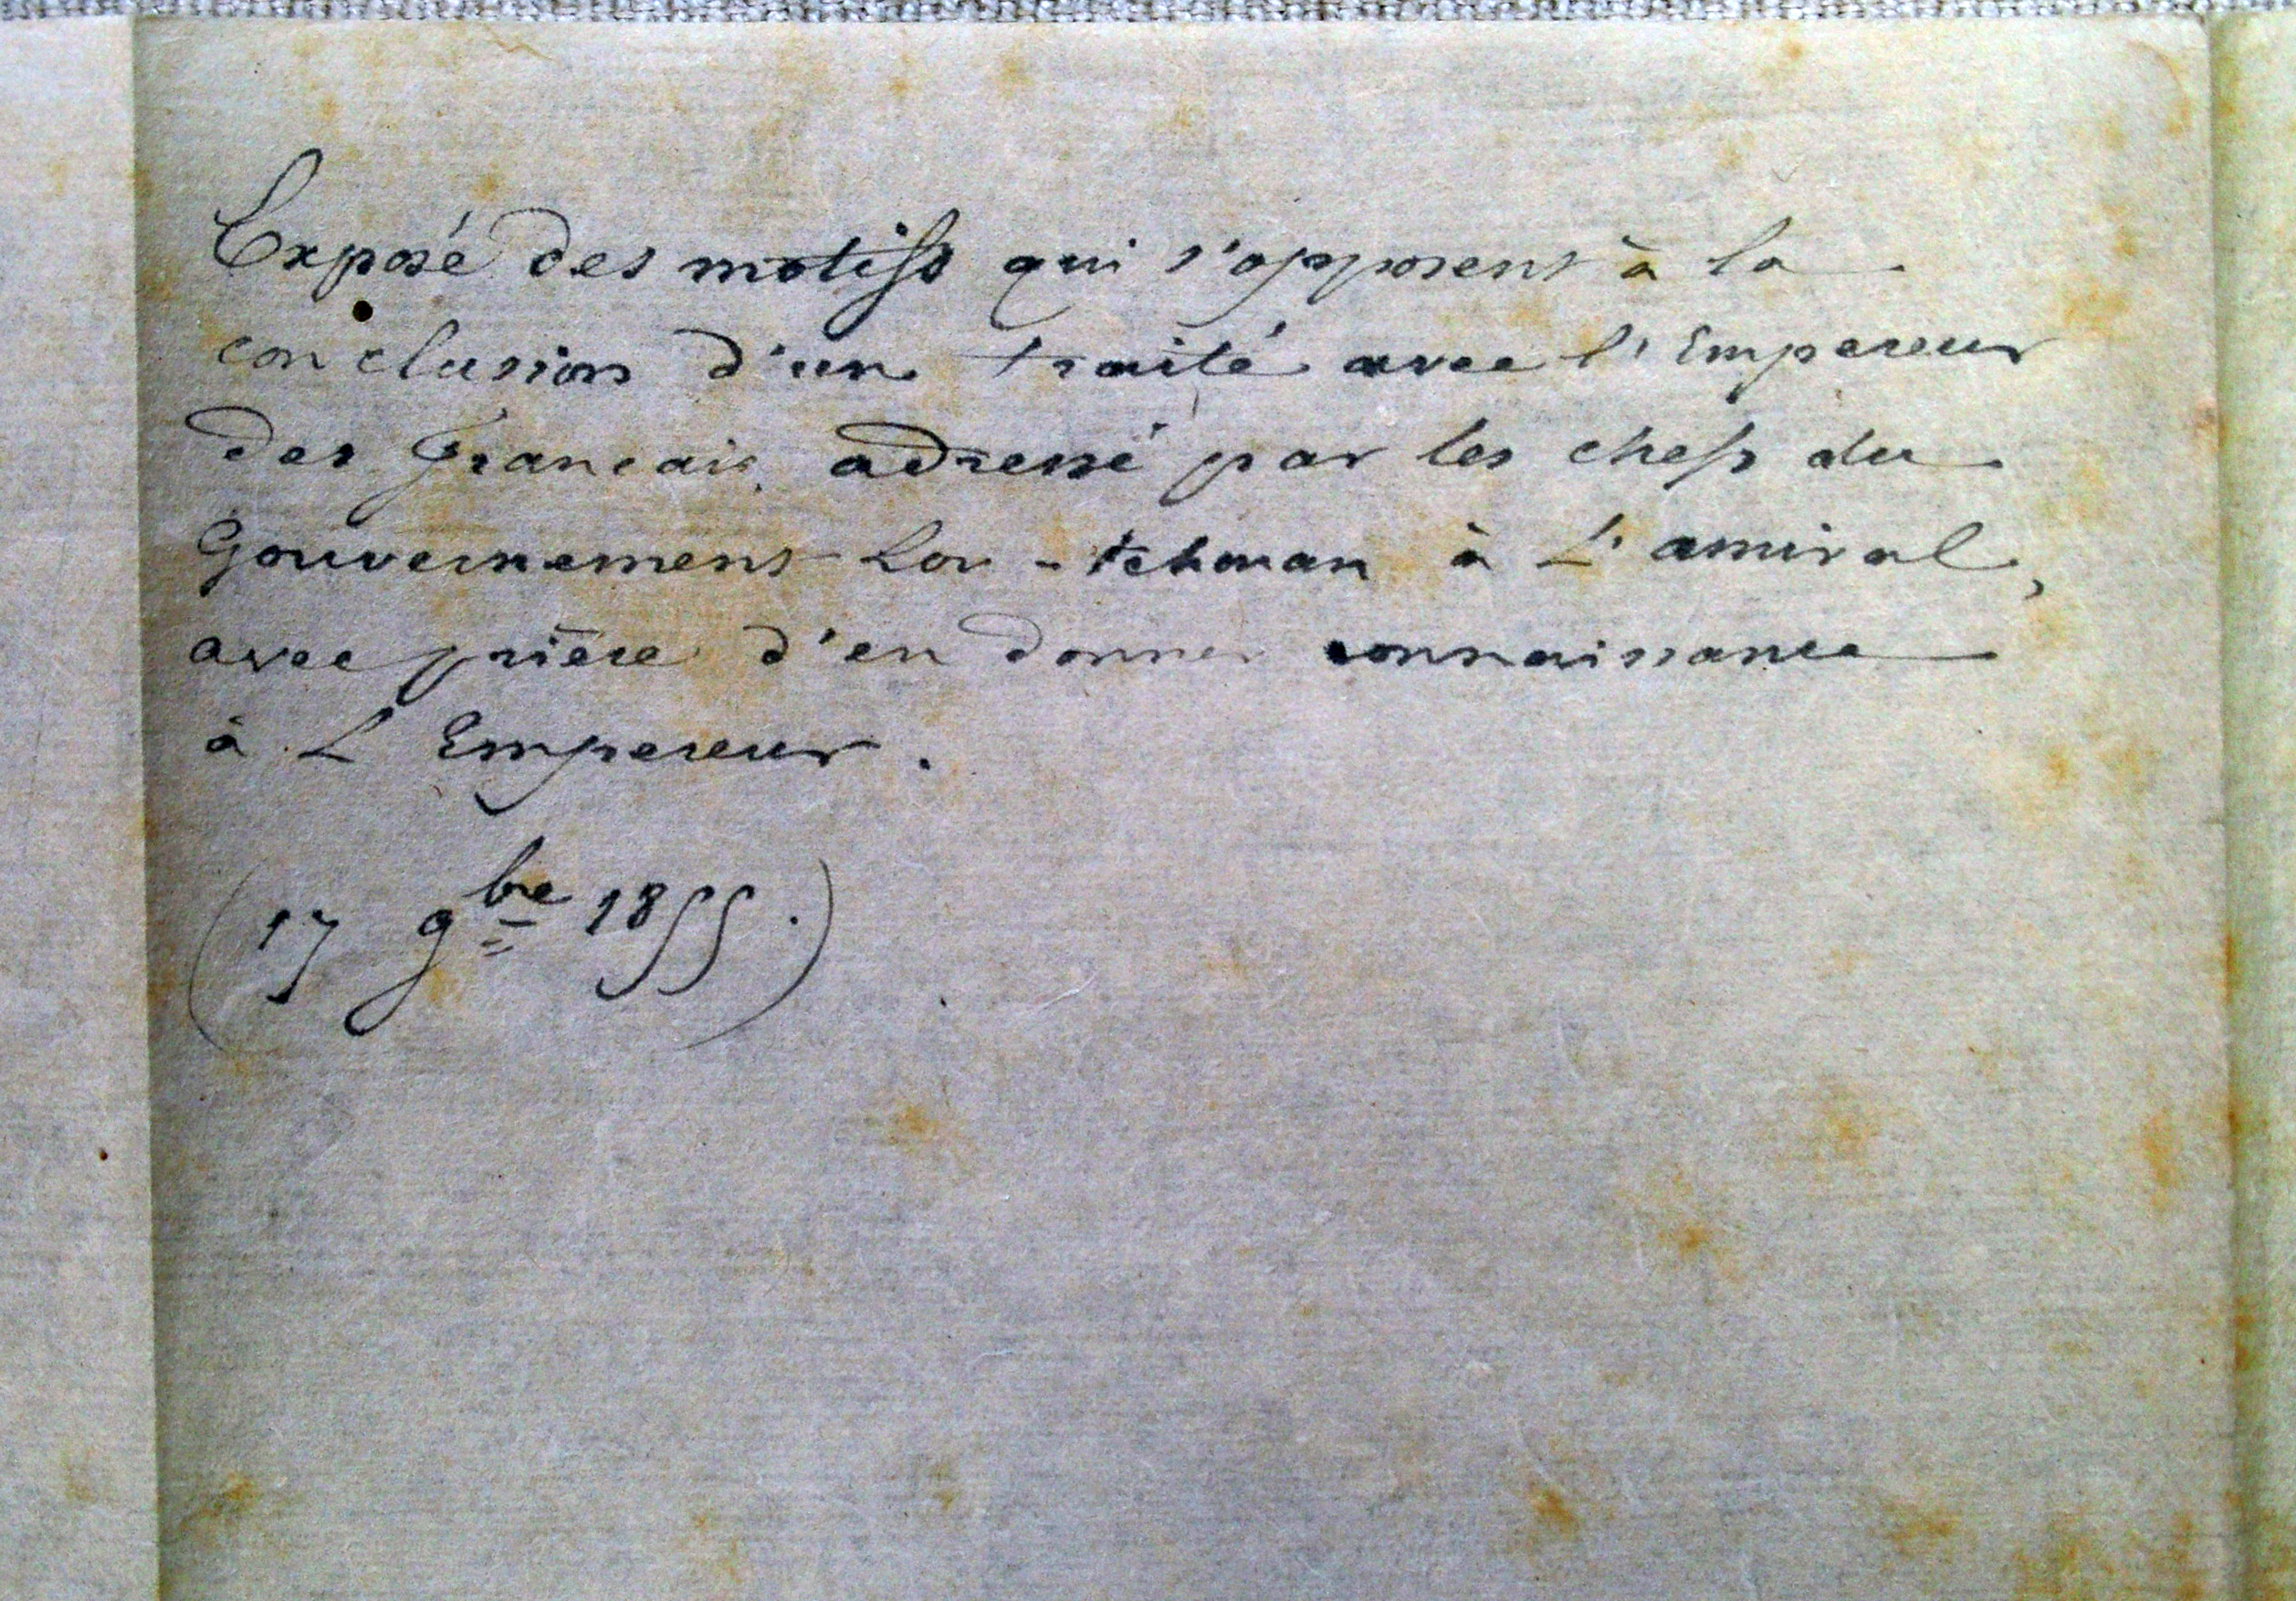 Exposé des motifs qui s'opposent à la
conclusion d'un traité avec l'Empereur
des Français, adressé par les chefs du
Gouvernement Lou-tchouan à L'amiral,
avec prière d'en donner connaissance
à L'Empereur.
(17 9bre 1855.)